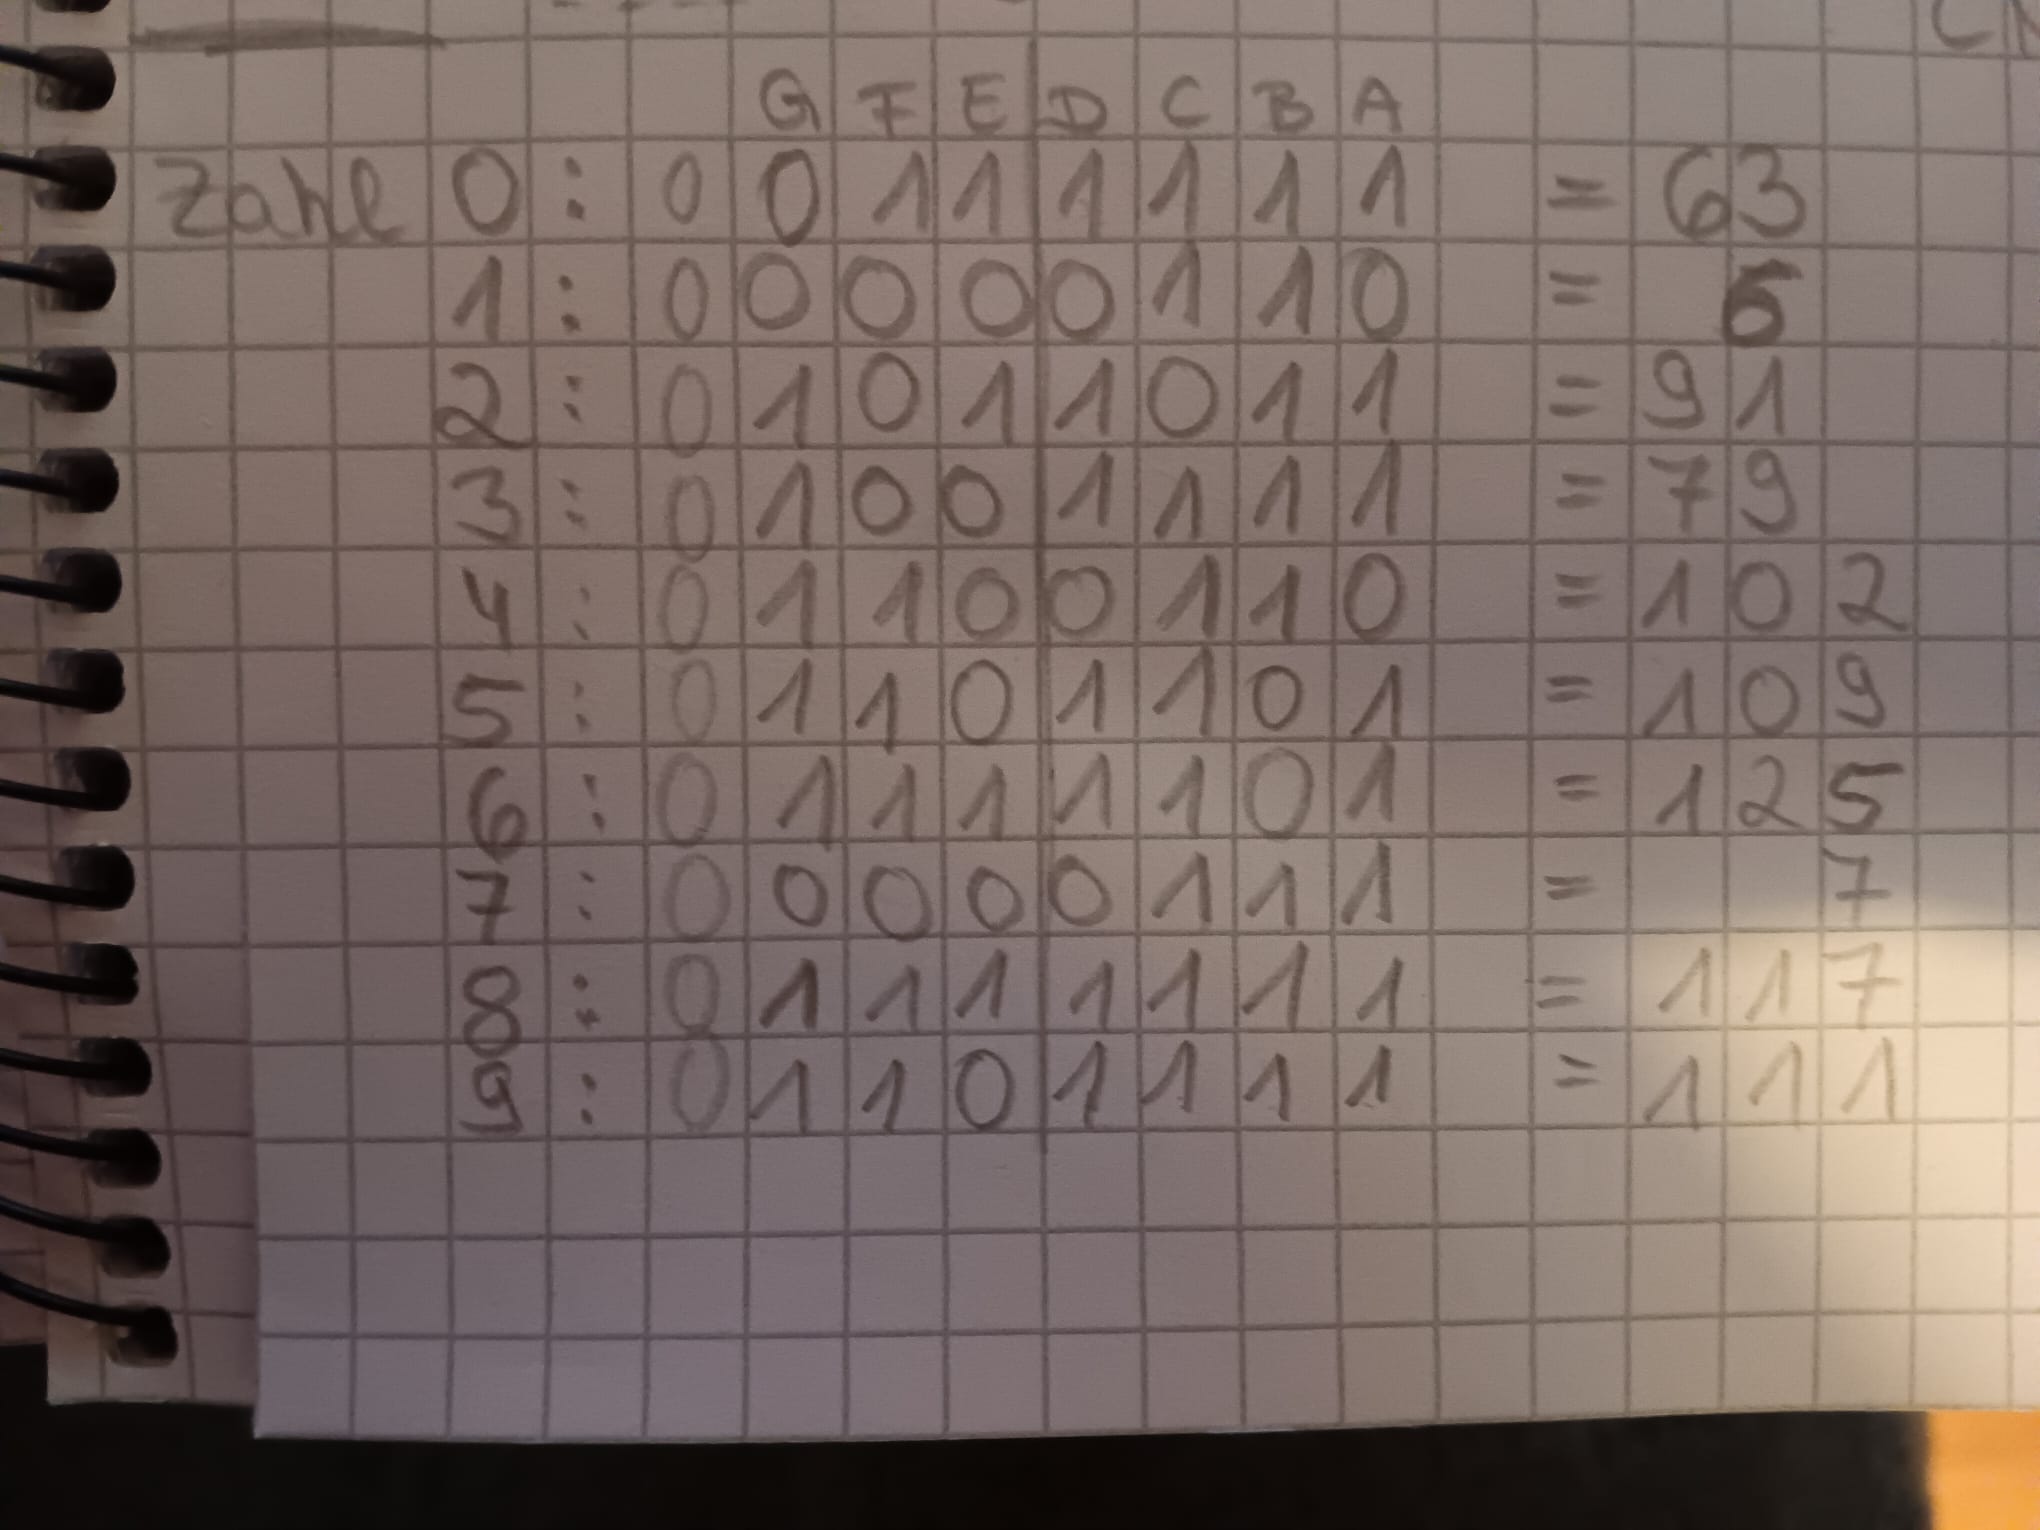 G F E D C B A
Zahl 0 : 0 0 1 1 1 1 1 1 = 63
1 : 0 0 0 0 0 1 1 0 = 6
2 : 0 1 0 1 1 0 1 1 = 91
3 : 0 1 0 0 1 1 1 1 = 79
4 : 0 1 1 0 0 1 1 0 = 102
5 : 0 1 1 0 1 1 0 1 = 109
6 : 0 1 1 1 1 1 0 1 = 125
7 : 0 0 0 0 0 1 1 1 = 7
8 : 0 1 1 1 1 1 1 1 = 117
9 : 0 1 1 0 1 1 1 1 = 111